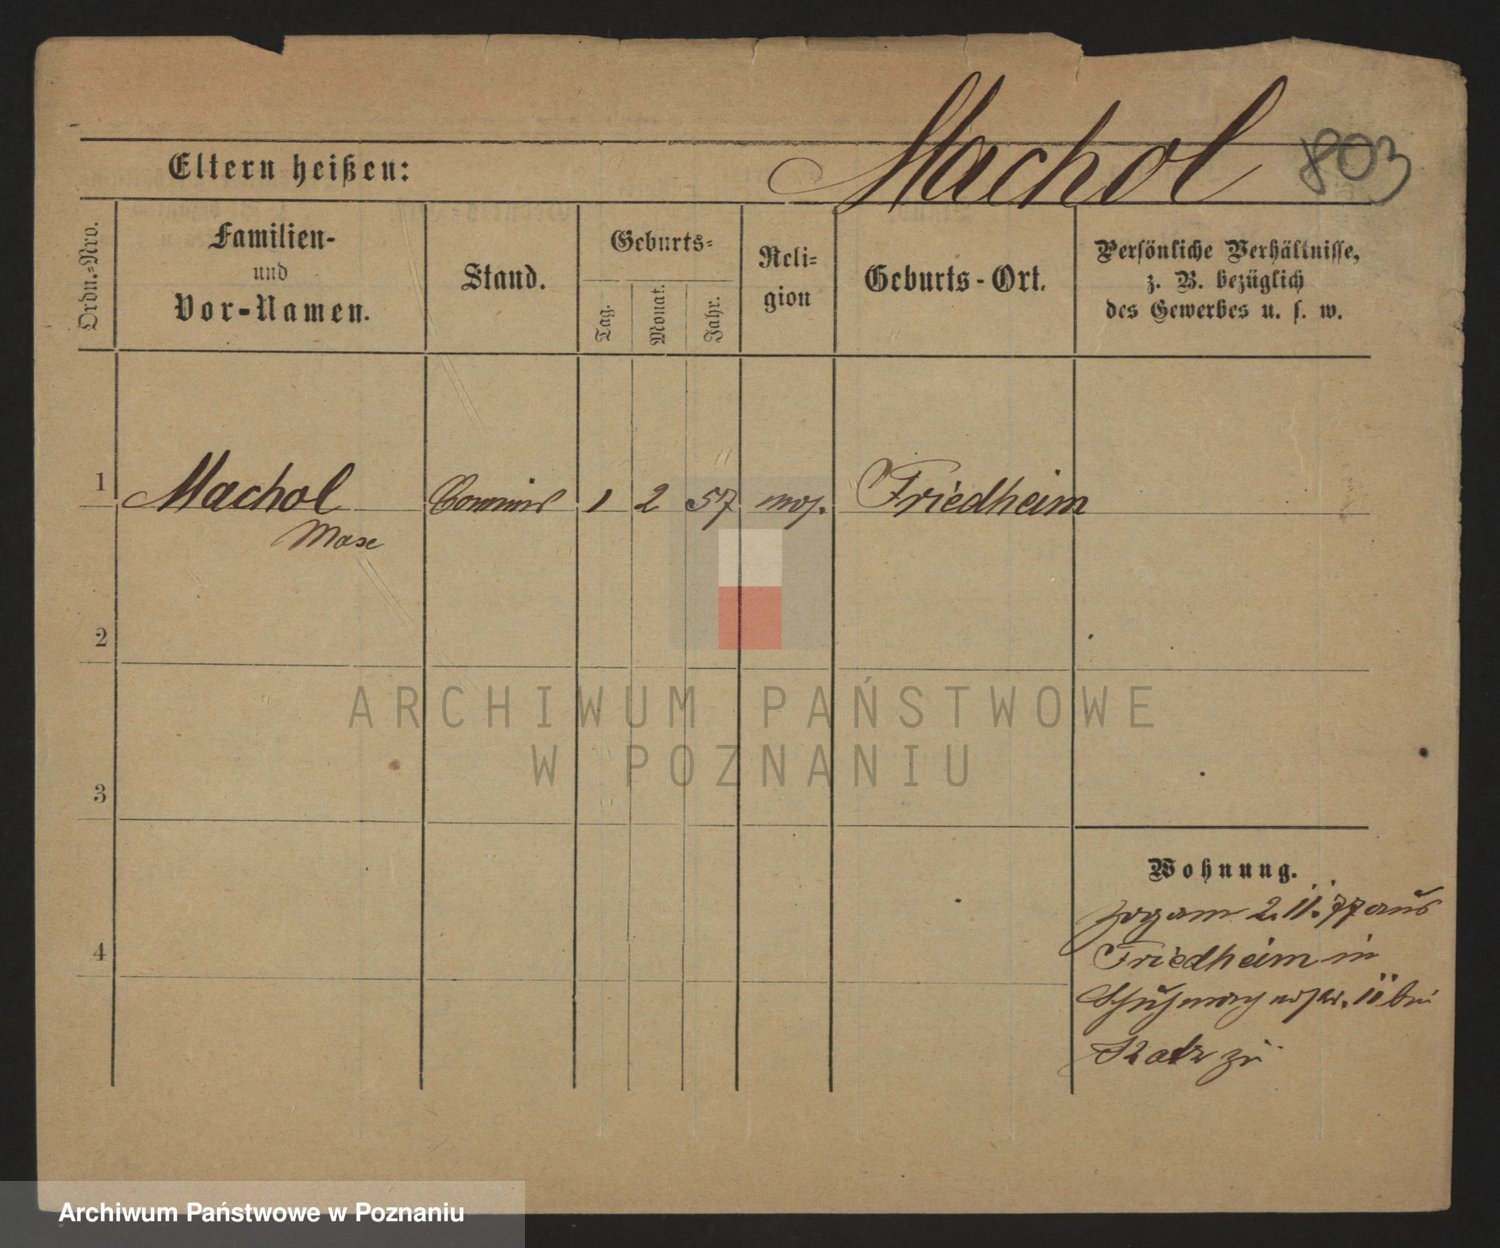 Machol 803
Eltern heißen:
Ordn.=Nro.
Familien-
und
Vor-Namen.
Stand.
Geburts=
Tag.
Monat.
Jahr.
Reli=
gion
Geburts-Ort.
Persönliche Verhältnisse,
z. B. bezüglich
des Gewerbes u. s. w.
1 Machol Commis 1 2 57 mos. Friedheim
Max
2
3
4
ARCHIWUM PAŃSTWOWE
W POZNANIU
Wohnung.
zog am 2. 11. 77 aus
Friedheim in
11 bei
Katz zu
Archiwum Państwowe w Poznaniu